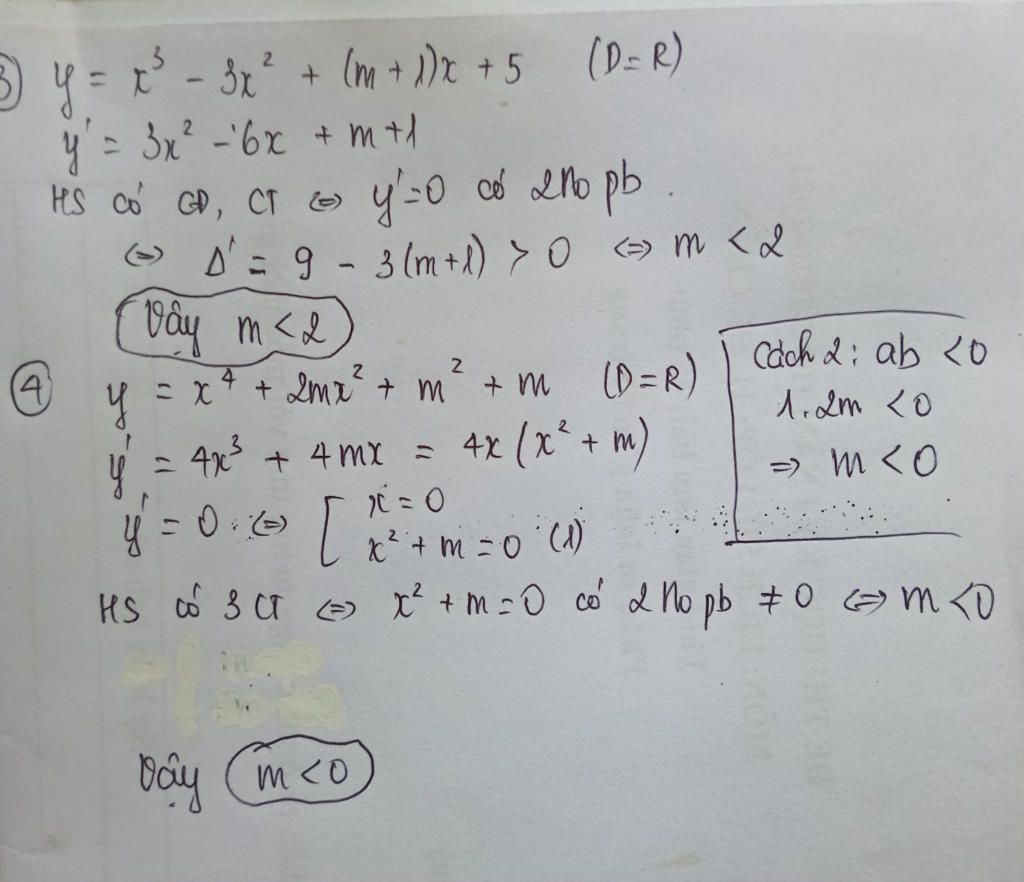 ③ y = x³ - 3x² + (m+1)x + 5 (D=R)
y' = 3x² - 6x + m+1
HS có CĐ, CT ⇔ y'=0 có 2 no pb.
⇔ Δ' = 9 - 3(m+1) > 0 ⇔ m < 2
Vậy m < 2
④ y = x⁴ + 2mx² + m² + m (D=R)
y' = 4x³ + 4mx = 4x(x² + m)
y' = 0 ⇔ [ x = 0
x² + m = 0 (1)
HS có 3 CT ⇔ x² + m = 0 có 2 no pb ≠ 0 ⇔ m < 0
Vậy m < 0
Cách 2: ab < 0
1.2m < 0
⇒ m < 0